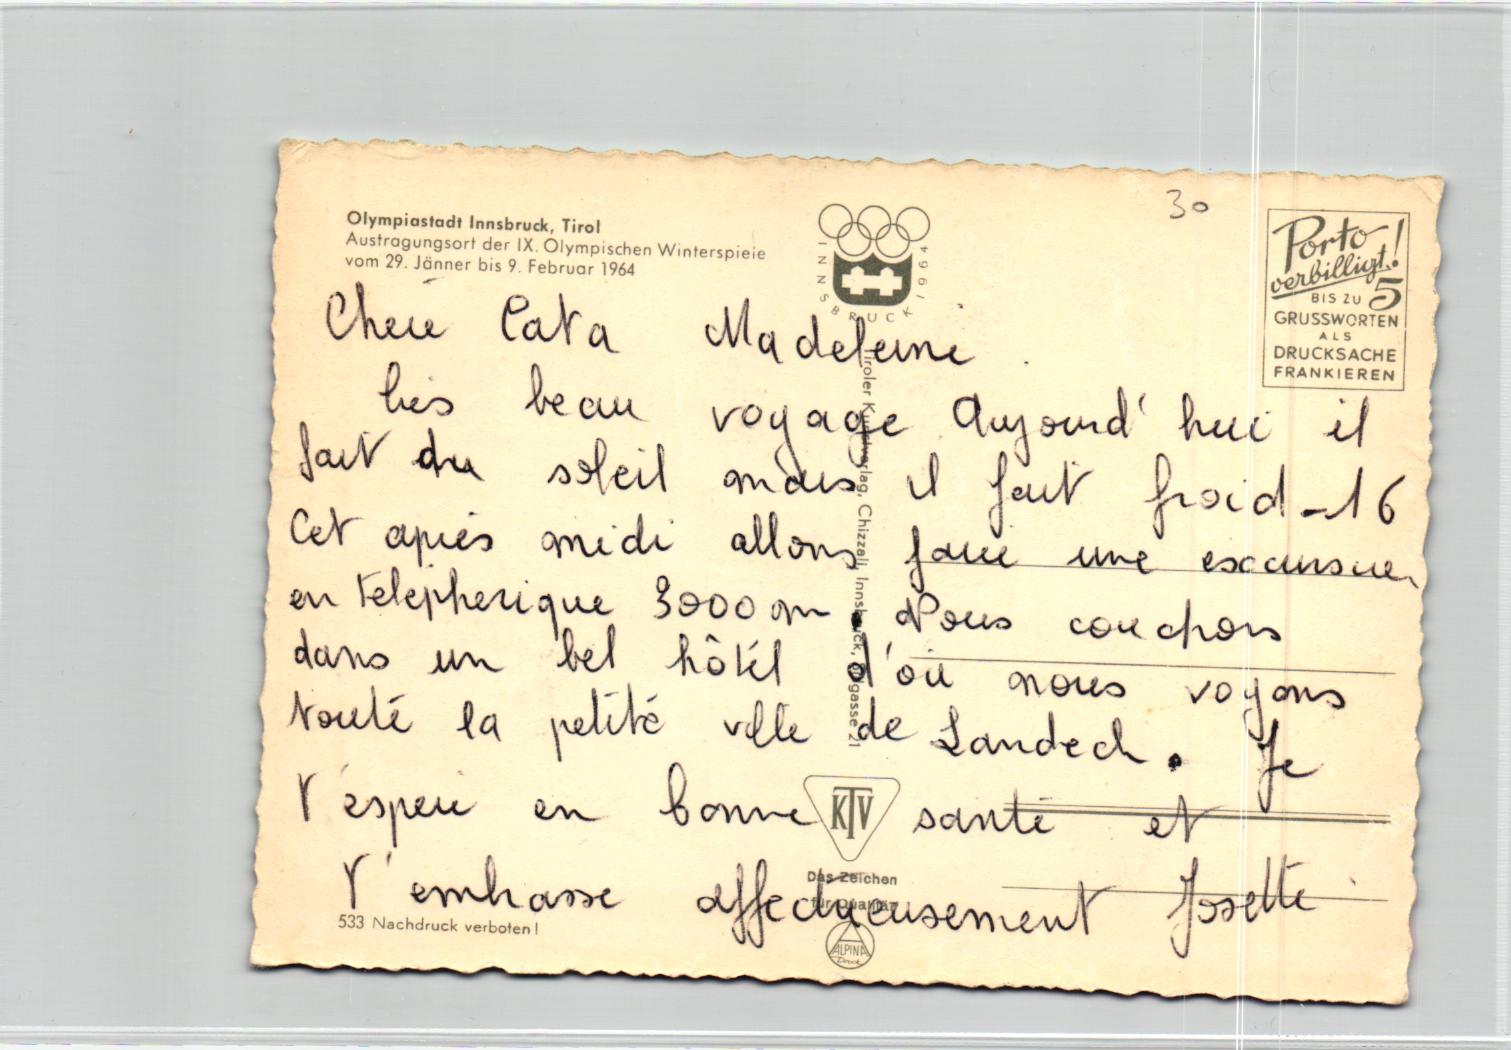 Olympiastadt Innsbruck, Tirol
Austragungsort der IX. Olympischen Winterspieie
vom 29. Jänner bis 9. Februar 1964
INNSBRUCK 1964
30
Porto
verbilligt!
BIS ZU 5
GRUSSWORTEN
ALS
DRUCKSACHE
FRANKIEREN
Chère Tata Madeleine
très beau voyage Aujourd'hui il
fait du soleil mais il fait froid -16
Cet après midi allons faire une excursion
en téléphérique 3000 m. Nous couchons
dans un bel hôtel d'où nous voyons
toute la petite ville de Landeck. Je
t'espère en bonne santé et
t'embrasse affectueusement Josette
Tiroler Kunstverlag, Chizzali, Innsbruck, 21
KTV
Das Zeichen
für Qualität
ALPINA
Druck
533 Nachdruck verboten!